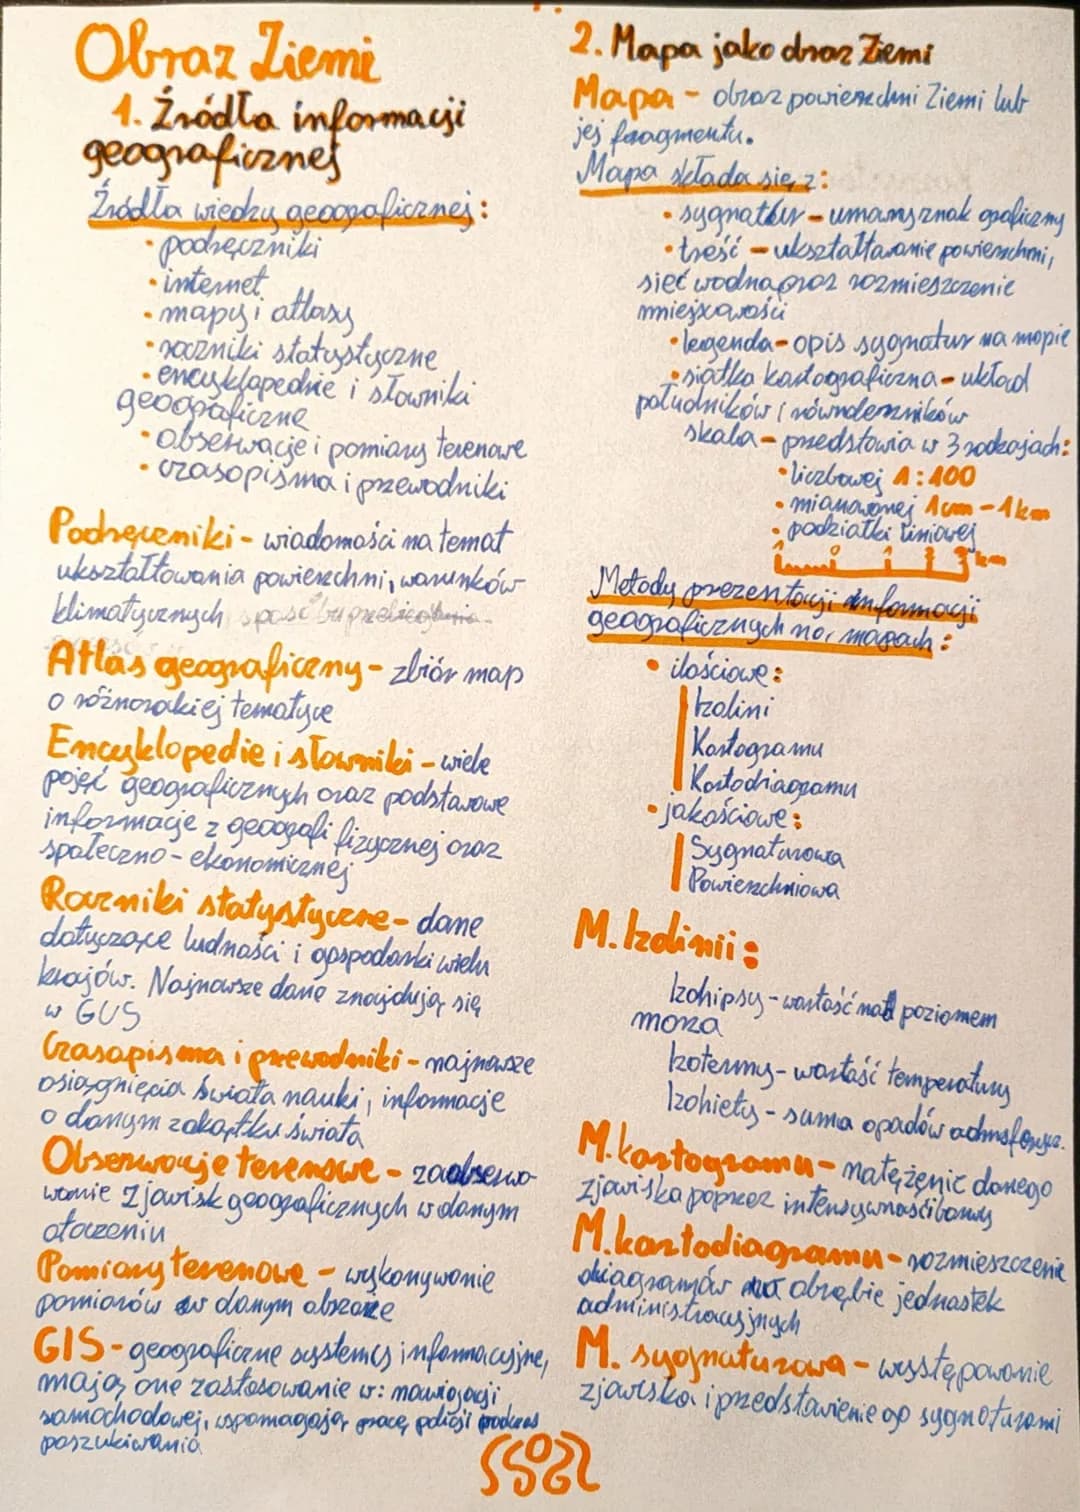 Obraz Ziemi
1. Źródła informacji
geograficznej
Źródła wiedzy geograficznej:
• podręczniki
• internet
• mapy i atlasy
• roczniki statystyczne
• encyklopednie i słowniki
geograficzne
• obserwacje i pomiary terenowe
• czasopisma i przewodniki
Podręczniki - wiadomości na temat
ukształtowania powierzchni, warunków
klimatycznych
Atlas geograficzny - zbiór map
o różnorakiej tematyce
Encyklopedie i słowniki - wiele
pojęć geograficznych oraz podstawowe
informacje z geografi fizycznej oraz
społeczno - ekonomicznej
Roczniki statystyczne - dane
dotyczące ludności i gospodarki wielu
krajów. Najnowsze dane znajdują się
w GUS
Czasopisma i przewodniki - najnowsze
osiągnięcia świata nauki, informacje
o danym zakątku świata
Obserwacje terenowe - zaobserwo-
wanie zjawisk geograficznych w danym
otoczeniu
Pomiary terenowe - wykonywanie
pomiarów w danym obszarze
GIS - geograficzne systemy informacyjne,
mają one zastosowanie w: nawigacji
samochodowej, wspomagają pracę policji podczas
poszukiwania
2. Mapa jako obraz Ziemi
Mapa - obraz powierzchni Ziemi lub
jej fragmentu.
Mapa składa się z:
• sygnatur - umowny znak graficzny
• treść - ukształtowanie powierzchni,
sieć wodna oraz rozmieszczenie
miejscowości
• legenda - opis sygnatur na mapie
• siatka kartograficzna - układ
południków i równoleżników
skala - przedstawia w 3 rodzajach:
• liczbowej 1:100
• mianowanej 1cm - 1km
• podziałki liniowej
1 0 1 2 3 km
Metody prezentacji informacji
geograficznych na mapach:
• ilościowe:
Izolini
Kartogramu
Kartodiagramu
• jakościowe:
Sygnaturowa
Powierzchniowa
M. Izolinii:
Izohipsy - wartość nad poziomem
morza
Izotermy - wartość temperatury
Izohiety - suma opadów
M. kartogramu - natężenie danego
zjawiska poprzez intensywność barwy
M. kartodiagramu - rozmieszczenie
diagramów obrębie jednostek
administracyjnych
M. sygnaturowa - występowanie
zjawiska i przedstawienie go sygnaturami